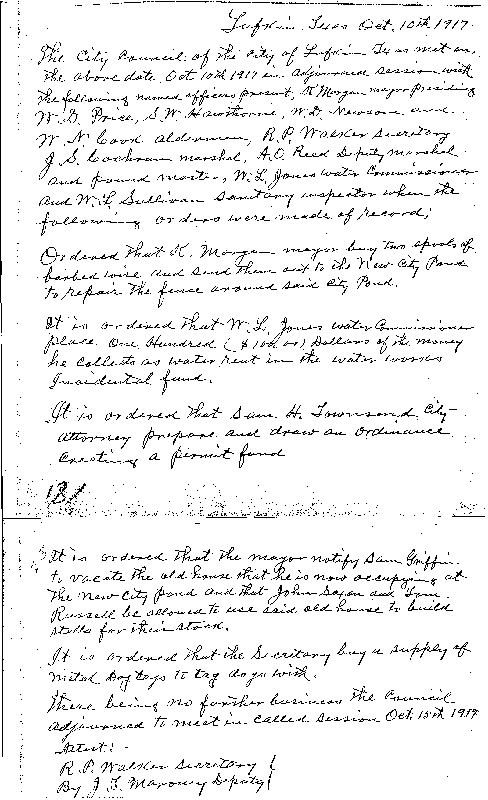 Lufkin Texas Oct. 10th 1917.
The City Council of the City of Lufkin Texas met on
the above date Oct 10th 1917 in adjourned session with
the following named officers present, K. Morgan mayor presiding
W. D. Price, S. W. Hawthorne, W. D. Newsom and
W. N. Cook aldermen, R. P. Walker Secretary
J. S. Cochran marshal, A. O. Reed Deputy marshal
and pound master, W. L. Jones water Commissioner
and W. L. Sullivan Sanitary inspector when the
following orders were made of record;
Ordered that K. Morgan mayor buy two spools of
barbed wire and send them out to the New City Pond
to repair the fence around said City Pond.
It is ordered that W. L. Jones water Commissioner
place One Hundred ($100.00) Dollars of the money
he collects as water rent in the water works
Incidental fund.
It is ordered that Sam. H. Townsend City
attorney prepare and draw an ordinance
creating a permit fund
181
It is ordered that the mayor notify Sam Griffin
to vacate the old house that he is now occupying at
the New City pond and that John Saxon and
Russell be allowed to use said old house to build
stalls for their stock.
It is ordered that the Secretary buy a supply of
metal Dog tags to tag dogs with.
There being no further business the Council
adjourned to meet in called session Oct. 15th 1917
Attest: -
R. P. Walker Secretary
By J. F. Maroney Deputy